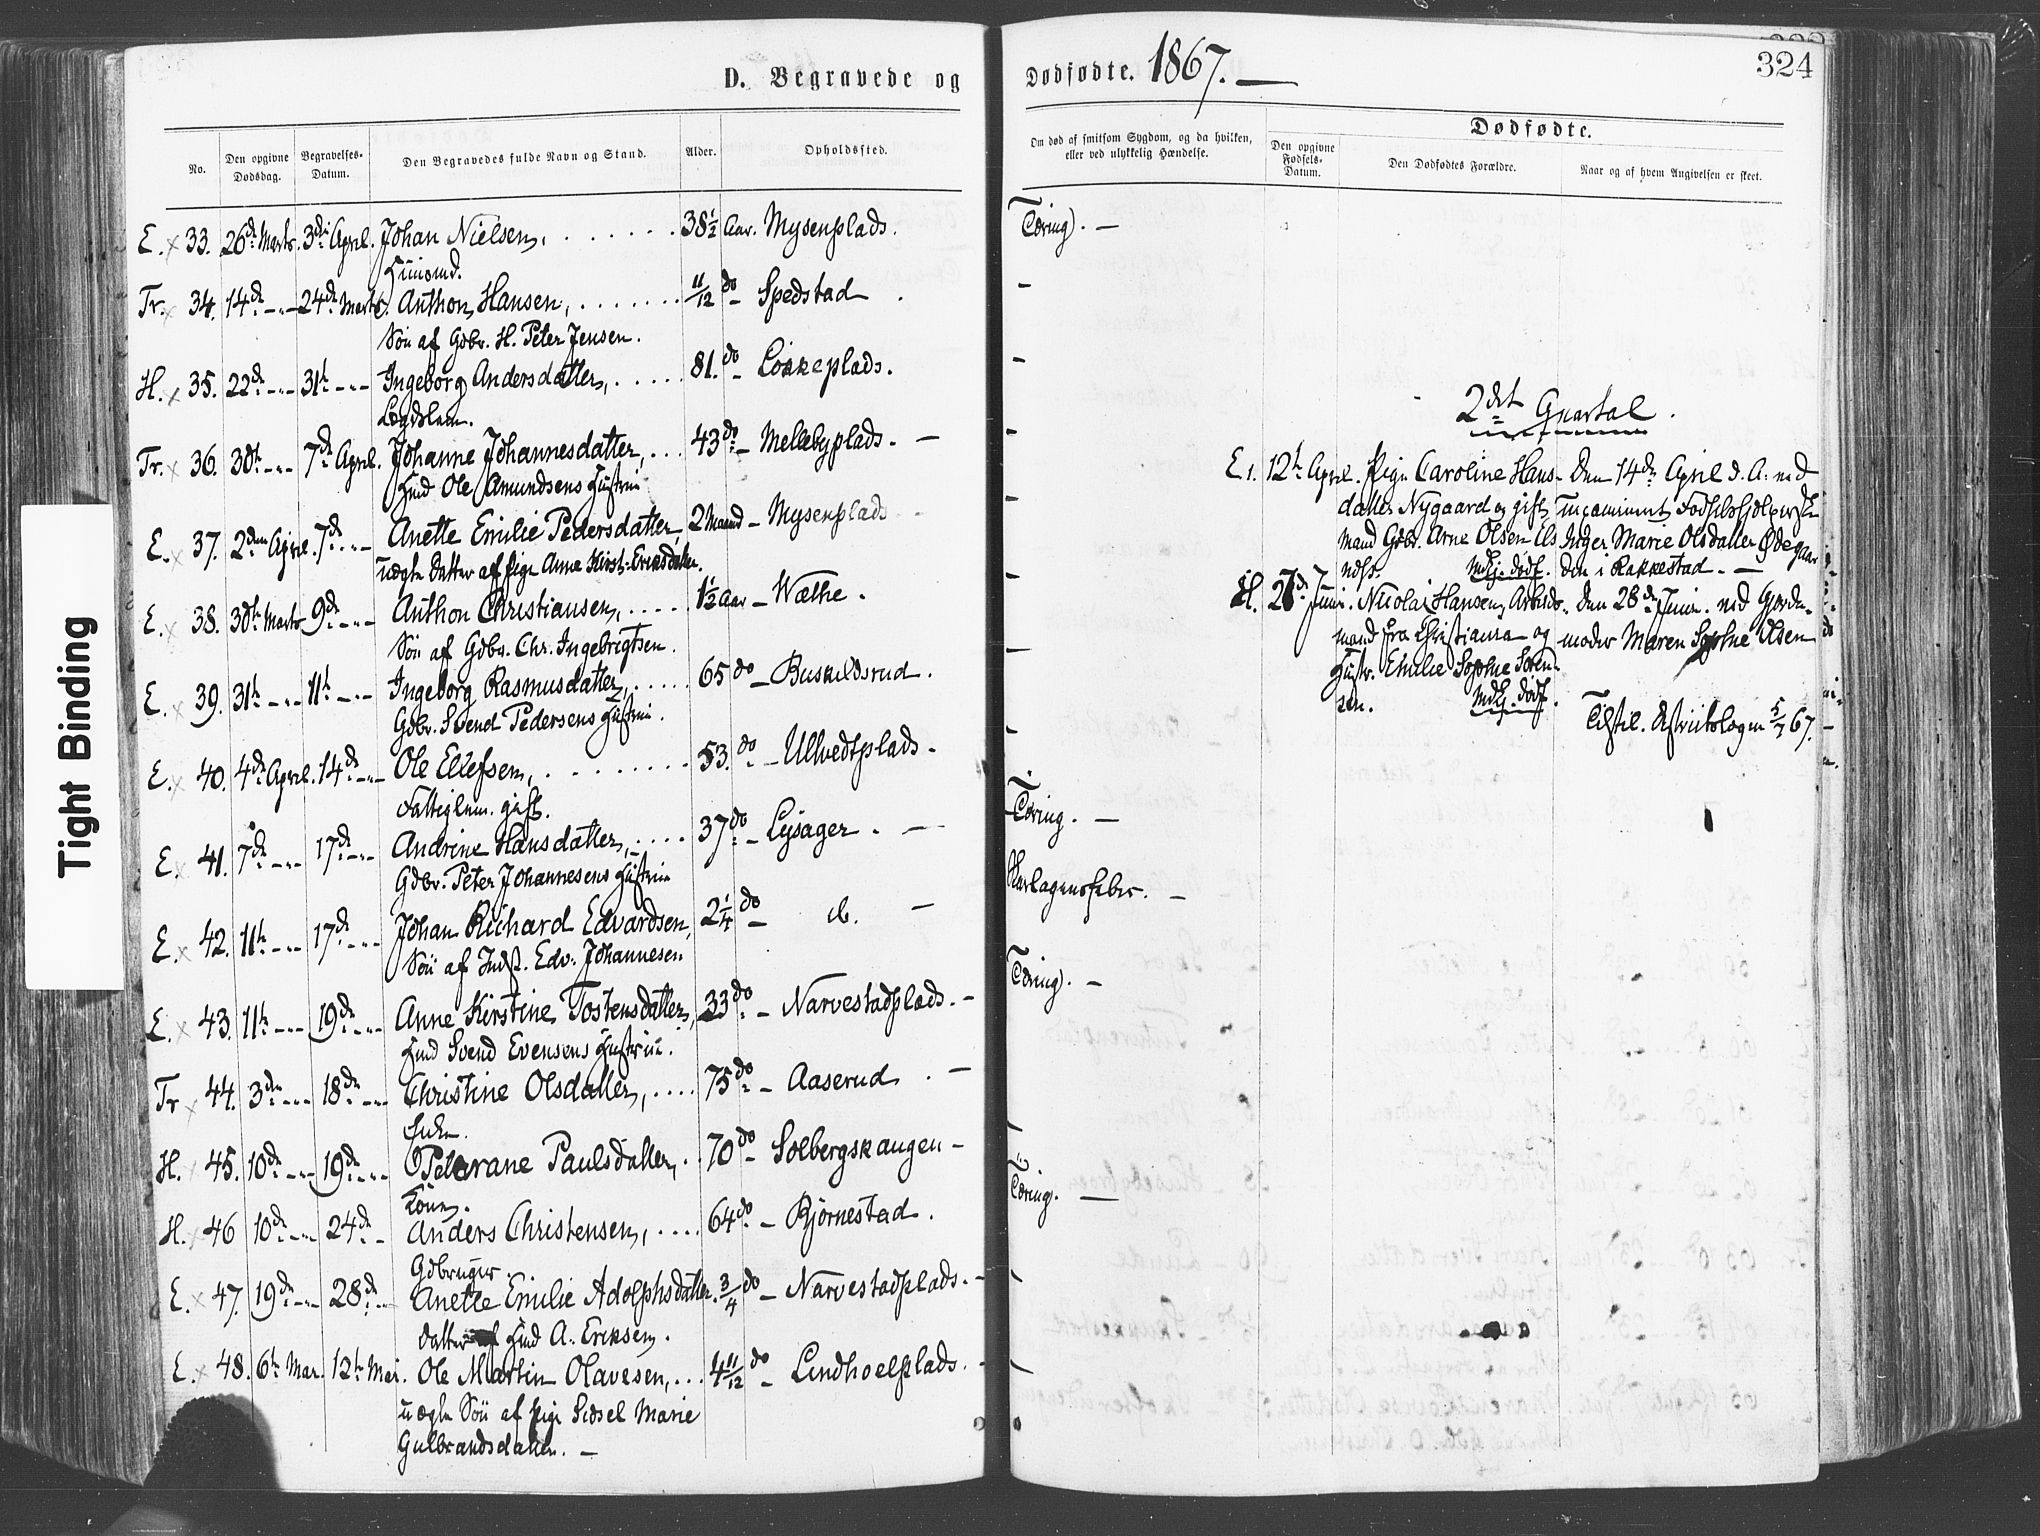 Tight Binding
D. Begravede og
No.
Den opgivne Dødsdag.
Begravelses-Datum.
Den Begravedes fulde Navn og Stand.
Alder.
Opholdssted.
E. × 33. 26de Marts. 3die April. Johan Nielsen, 38½ Aar. Mysenplads.
Huusmd.
Tr. × 34. 14de -"- 24de Marts. Anthon Hansen, 11/12 do - Spedstad
Søn af Gdbr. H. Peter Jensen.
H. × 35. 22de -"- 31te -"- Ingeborg Andersdatter, 81. do - Løkkeplads.
Lægdslem.
Tr. × 36. 30te -"- 7de April. Johanne Johannesdatter, 43 do - Mellebyplads. -
Hmd Ole Amundsens Hustru
E. × 37. 2den April. 7de -"- Anette Emilie Pedersdatter, 2 Maaned - Mysenplads -
uægte Datter af Pige Anne Kirst. Eriksdatter.
E. × 38. 30te Marts 9de -"- Anthon Christiansen, 1½ Aar - Wæthe.
Søn af Gdbr. Chr. Ingebrigtsen.
E. × 39. 31te -"- 11te -"- Ingeborg Rasmusdatter, 65 do - Buskuldsrud.
Gdbr. Svend Pedersens Hustru.
E. × 40. 4de April. 14de -"- Ole Ellefsen, 53. do - Ullvedtplads -
Fattiglem. gift.
E. × 41. 7de -"- 17de -"- Andrine Hansdatter, 37 do - Lysager. -
Gdbr. Peter Johannesens Hustru
E. × 42. 11te -"- 17de -"- Johan Richard Edvardsen, 2¼ do - do. -
Søn af Indst. Edv. Johannesen
E. × 43. 11te -"- 19de -"- Anne Kirstine Tostensdatter, 33 do - Narvestadplads. -
Hmd Svend Evensens Hustru.
Tr × 44. 3de -"- 18de -"- Christine Olsdatter, 75 do - Aaserud. -
Enke.
H. × 45. 10de -"- 19de -"- Peterane Paulsdatter, 70 do - Solbergskaugen -
Kone.
H. × 46 10de -"- 24de - Anders Christensen, 64 do - Bjørnestad.
Gdbruger.
E. × 47. 19de -"- 28de -"- Anette Emilie Adolphsdatter. ¾ do - Narvestadplads. -
Datter af Hmd A. Eriksen.
E. × 48. 6te Mai. 12te Mai. Ole Martin Olavesen, 4 11/12 do - Lindhoelplads. -
uægte Søn af Pige Sidsel Marie
Gulbrandsdatter. -
Dødfødte. 1867. -
324
Om død af smitsom Sygdom, og da hvilken,
eller ved ulykkelig Hændelse.
Dødfødte.
Den opgivne Fødsels-Datum.
Den Dødfødtes Forældre.
Naar og af hvem Angivelsen er skeet.
Tæring. -
2det Quartal.
E 1. 12te April. Pige Caroline Hans- Den 14de April d. A. ved
datter Nygaard og gift examineret Fødselshjelperske
mand Gdbr. Arne Olsen Inger Marie Olsdatter Ødegaar
Mdkj. dødf. den i Rakkestad. -
H. 27de Juni. Nicolai Hansen, Arbeids- Den 28de Juni. ved Gjorde-
mand fra Christiania og moder Maren Sophie Olsen
Hustr. Emilie Sophie Soren-
sen. Mdkj. dødf.
5/7 67.
Tæring. -
Tæring. -
Tæring. -